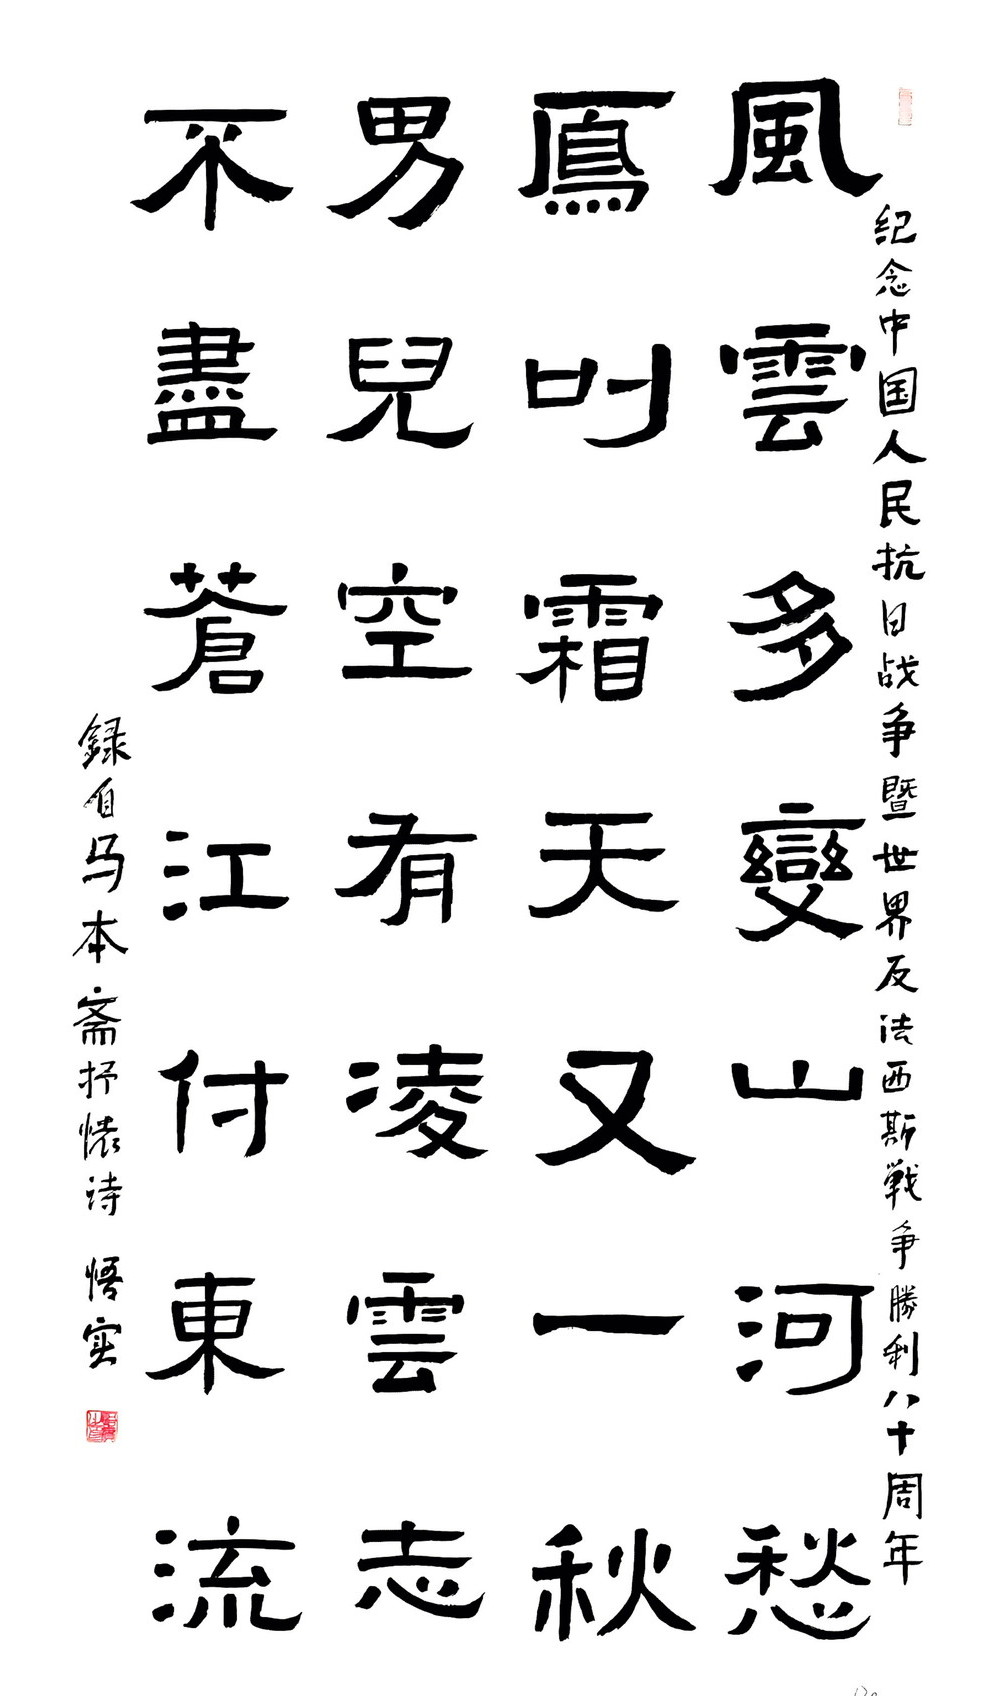 纪念中国人民抗日战争暨世界反法西斯戦争勝利八十周年
風雲多變山河愁
鳫叫霜天又一秋
男兒空有凌雲志
不盡蒼江付東流
録自马本斋抒懐诗 悟实